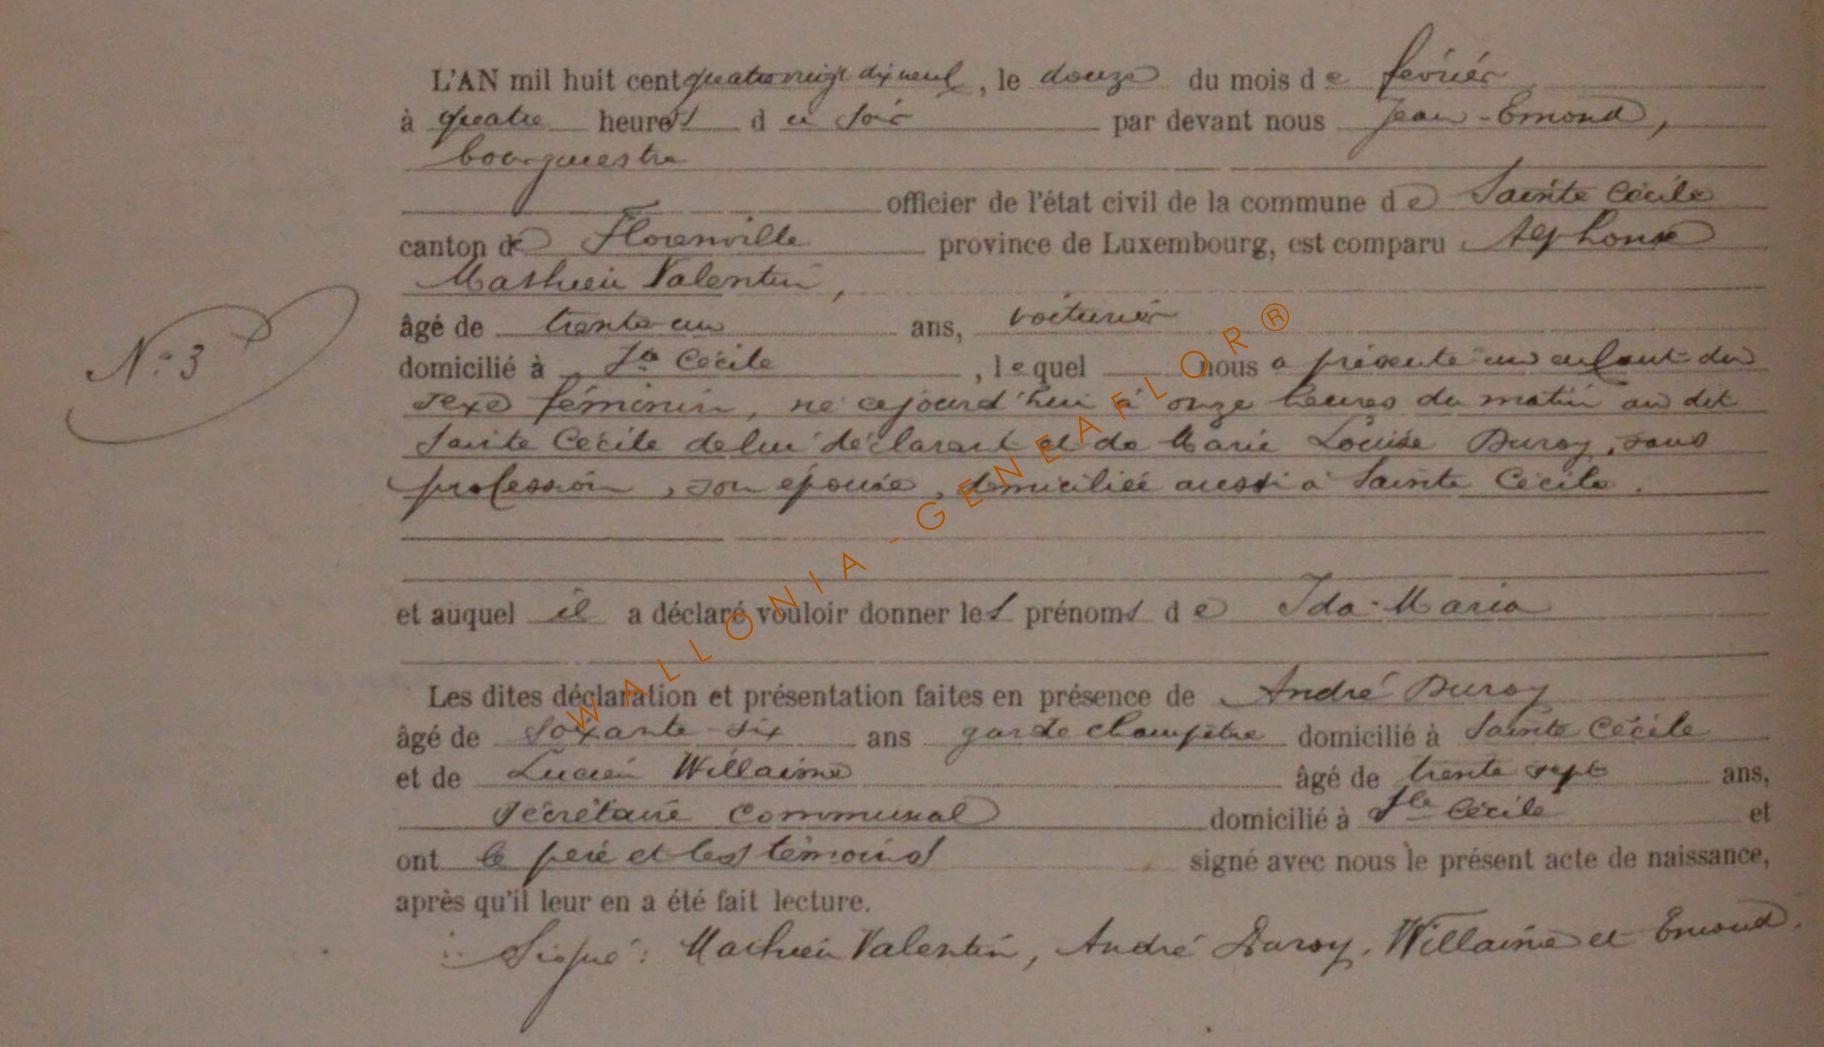 L'AN mil huit cent quatrevingt dix neuf, le douze du mois de février
à quatre heures du soir par devant nous Jean-Emond,
bourgmestre
officier de l'état civil de la commune de Sainte Cécile
canton de Florenville province de Luxembourg, est comparu Alphonse
Mathieu Valentin,
âgé de trente un ans, voiturier
domicilié à Ste Cécile, lequel nous a présenté un enfant du
sexe féminin, né cejourd'hui à onze heures du matin au dit
Sainte Cécile de lui déclarant et de Marie Louise Duroy, sans
profession, son épouse, domiciliée aussi à Sainte Cécile.
N° 3
et auquel il a déclaré vouloir donner les prénoms de Ida-Maria
Les dites déclaration et présentation faites en présence de André Duroy
âgé de soixante-six ans garde champêtre domicilié à Sainte Cécile
et de Lucien Willaime âgé de trente sept ans,
secrétaire communal domicilié à Ste Cécile et
ont le père et les témoins signé avec nous le présent acte de naissance,
après qu'il leur en a été fait lecture.
Signé: Mathieu Valentin, André Duroy, Willaime et Emond.
WALLONIA - GENEAFLOR®